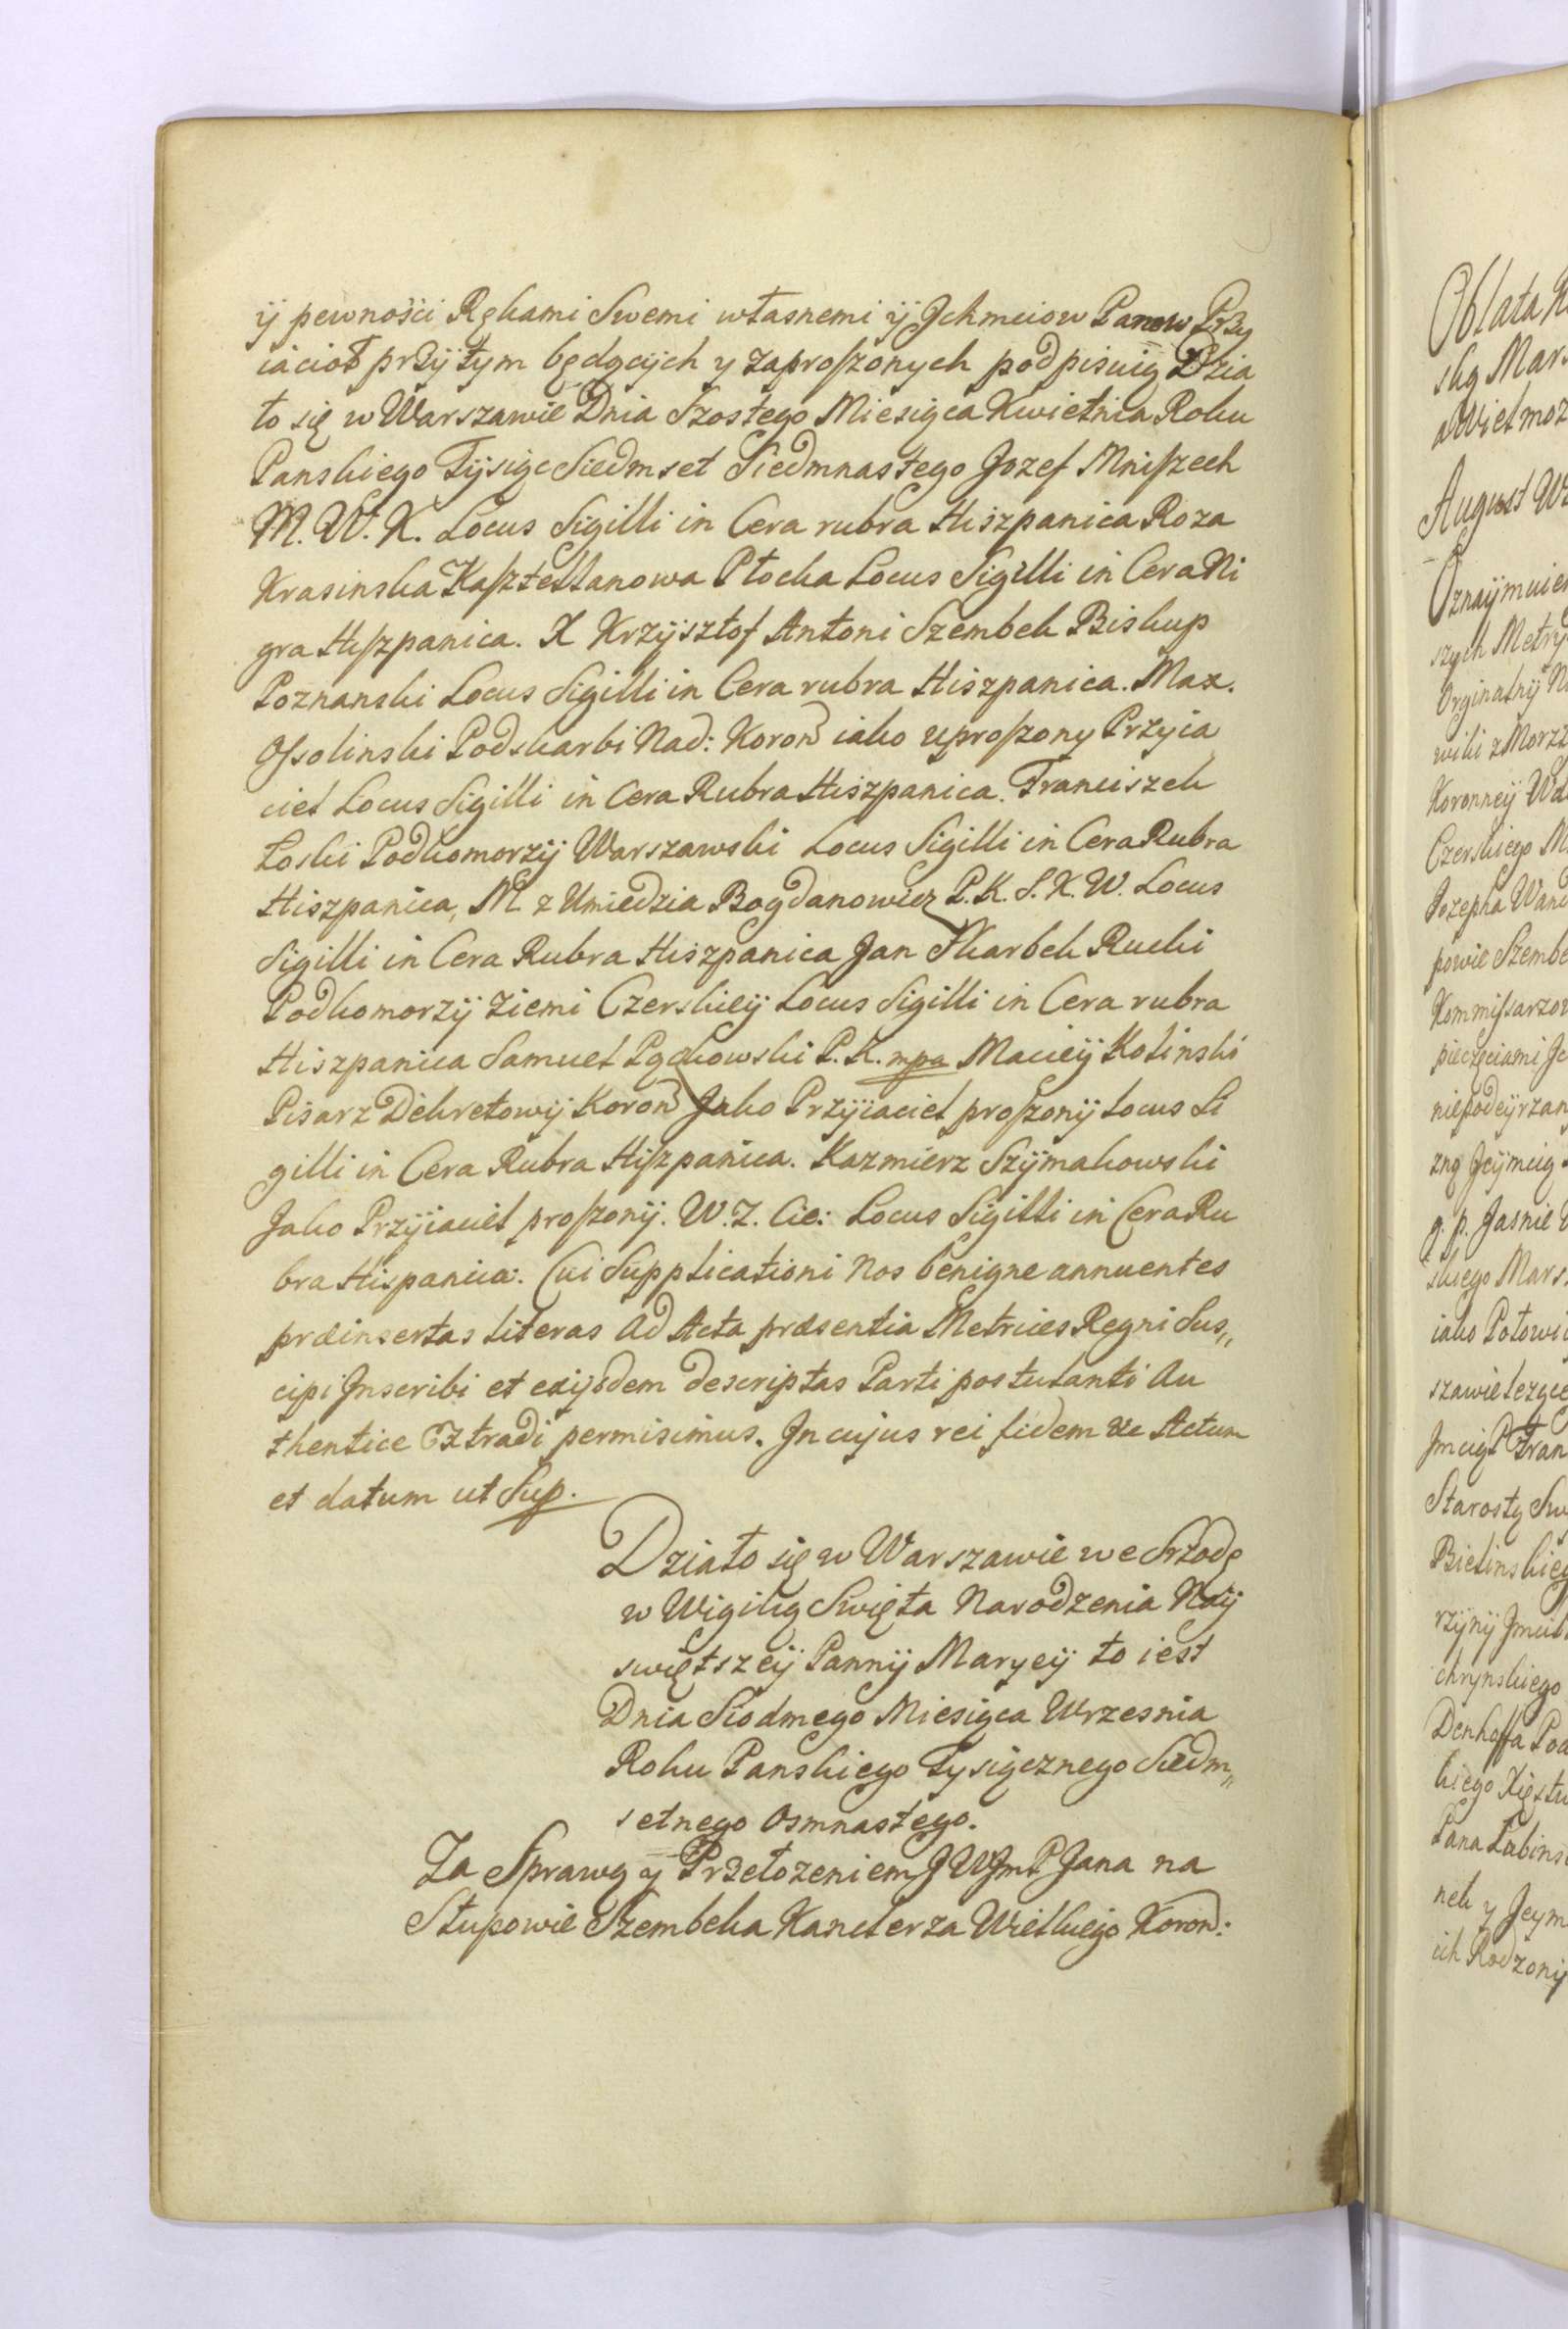 ÿ pewności Rękami Swemi własnemi ÿ Jchmciow Panow Przy
iacioł przÿ tym będącÿch y zaproszonych podpisuią Dzia
ło się w Warszawie Dnia Szostego Miesiąca Kwietnia Roku
Panskiego Tÿsiąc Siedmset Siedmnastego Jozef Mniszech
M. W. K. Locus Sigilli in Cera rubra Hiszpanica Roza
Krasinska Kasztellanowa Płocka Locus Sigilli in Cera Ni
gra Hiszpanica. X Krzÿsztof Antoni Szembek Biskup
Poznanski Locus Sigilli in Cera rubra Hiszpanica. Max.
Ossolinski Podskarbi Nad: Koron iako uproszony Przyia
ciel Locus Sigilli in Cera Rubra Hiszpanica. Franciszek
Łoski Podkomorzÿ Warszawski Locus Sigilli in Cera Rubra
Hiszpanica, M. z Umiedzia Bogdanowicz P. K. S. K. W. Locus
Sigilli in Cera Rubra Hiszpanica Jan Skarbek Rucki
Podkomorzÿ Ziemi Czerskieÿ Locus Sigilli in Cera rubra
Hiszpanica Samuel Pąckowski P. K. mpa Macieÿ Kolinski
Pisarz Dekretowÿ Koron Jako Przÿiaciel proszonÿ Locus Si
gilli in Cera Rubra Hiszpanica. Kazmierz Szÿmakowski
Jako Przÿiaciel proszonÿ. W. Z. Cie: Locus Sigilli in Cera Ru
bra Hispanica. Cui Supplicationi Nos benigne annuentes
præinsertas literas ad Acta præsentia Metrices Regni Sus„
cipi Jnscribi et exÿsdem descriptas Parti postulanti Au
thentice Extradi permisimus. Jn cujus rei fidem &c Actum
et datum ut Sup.
Działo się w Warszawie we Srzodę
w Wigilią Swięta Narodzenia Naÿ
swiętszeÿ Pannÿ Maryeÿ to iest
Dnia Siodmego Miesiąca Wrzesnia
Roku Panskiego Tysiącznego Siedm„
setnego Osmnastego.
Za Sprawą y Przełozeniem JWJmP Jana na
Słupowie Szembeka Kanclerza Wielkiego Koron:
Oblata
ską Mars
a Wielmoz
August
Oznaÿmuiem
szych Metry
Orginalnÿ
wiki z Morsz
Koronneÿ
Czerskiego
Jozepha
powie Szembe
Kommissarzow
pieczęciami
niepodeÿrzan
zną Jeÿmcią
g. p. Jasnie
skiego Mars
iako Połowi
szawie lezące
Jmcią P Fran
Starostą
Bielinskieg
rzÿnÿ Jmci
chrynskiego
Denhoffa
kiego Xięstw
Pana Lubins
nek y Jeym
ich Rodzonÿ